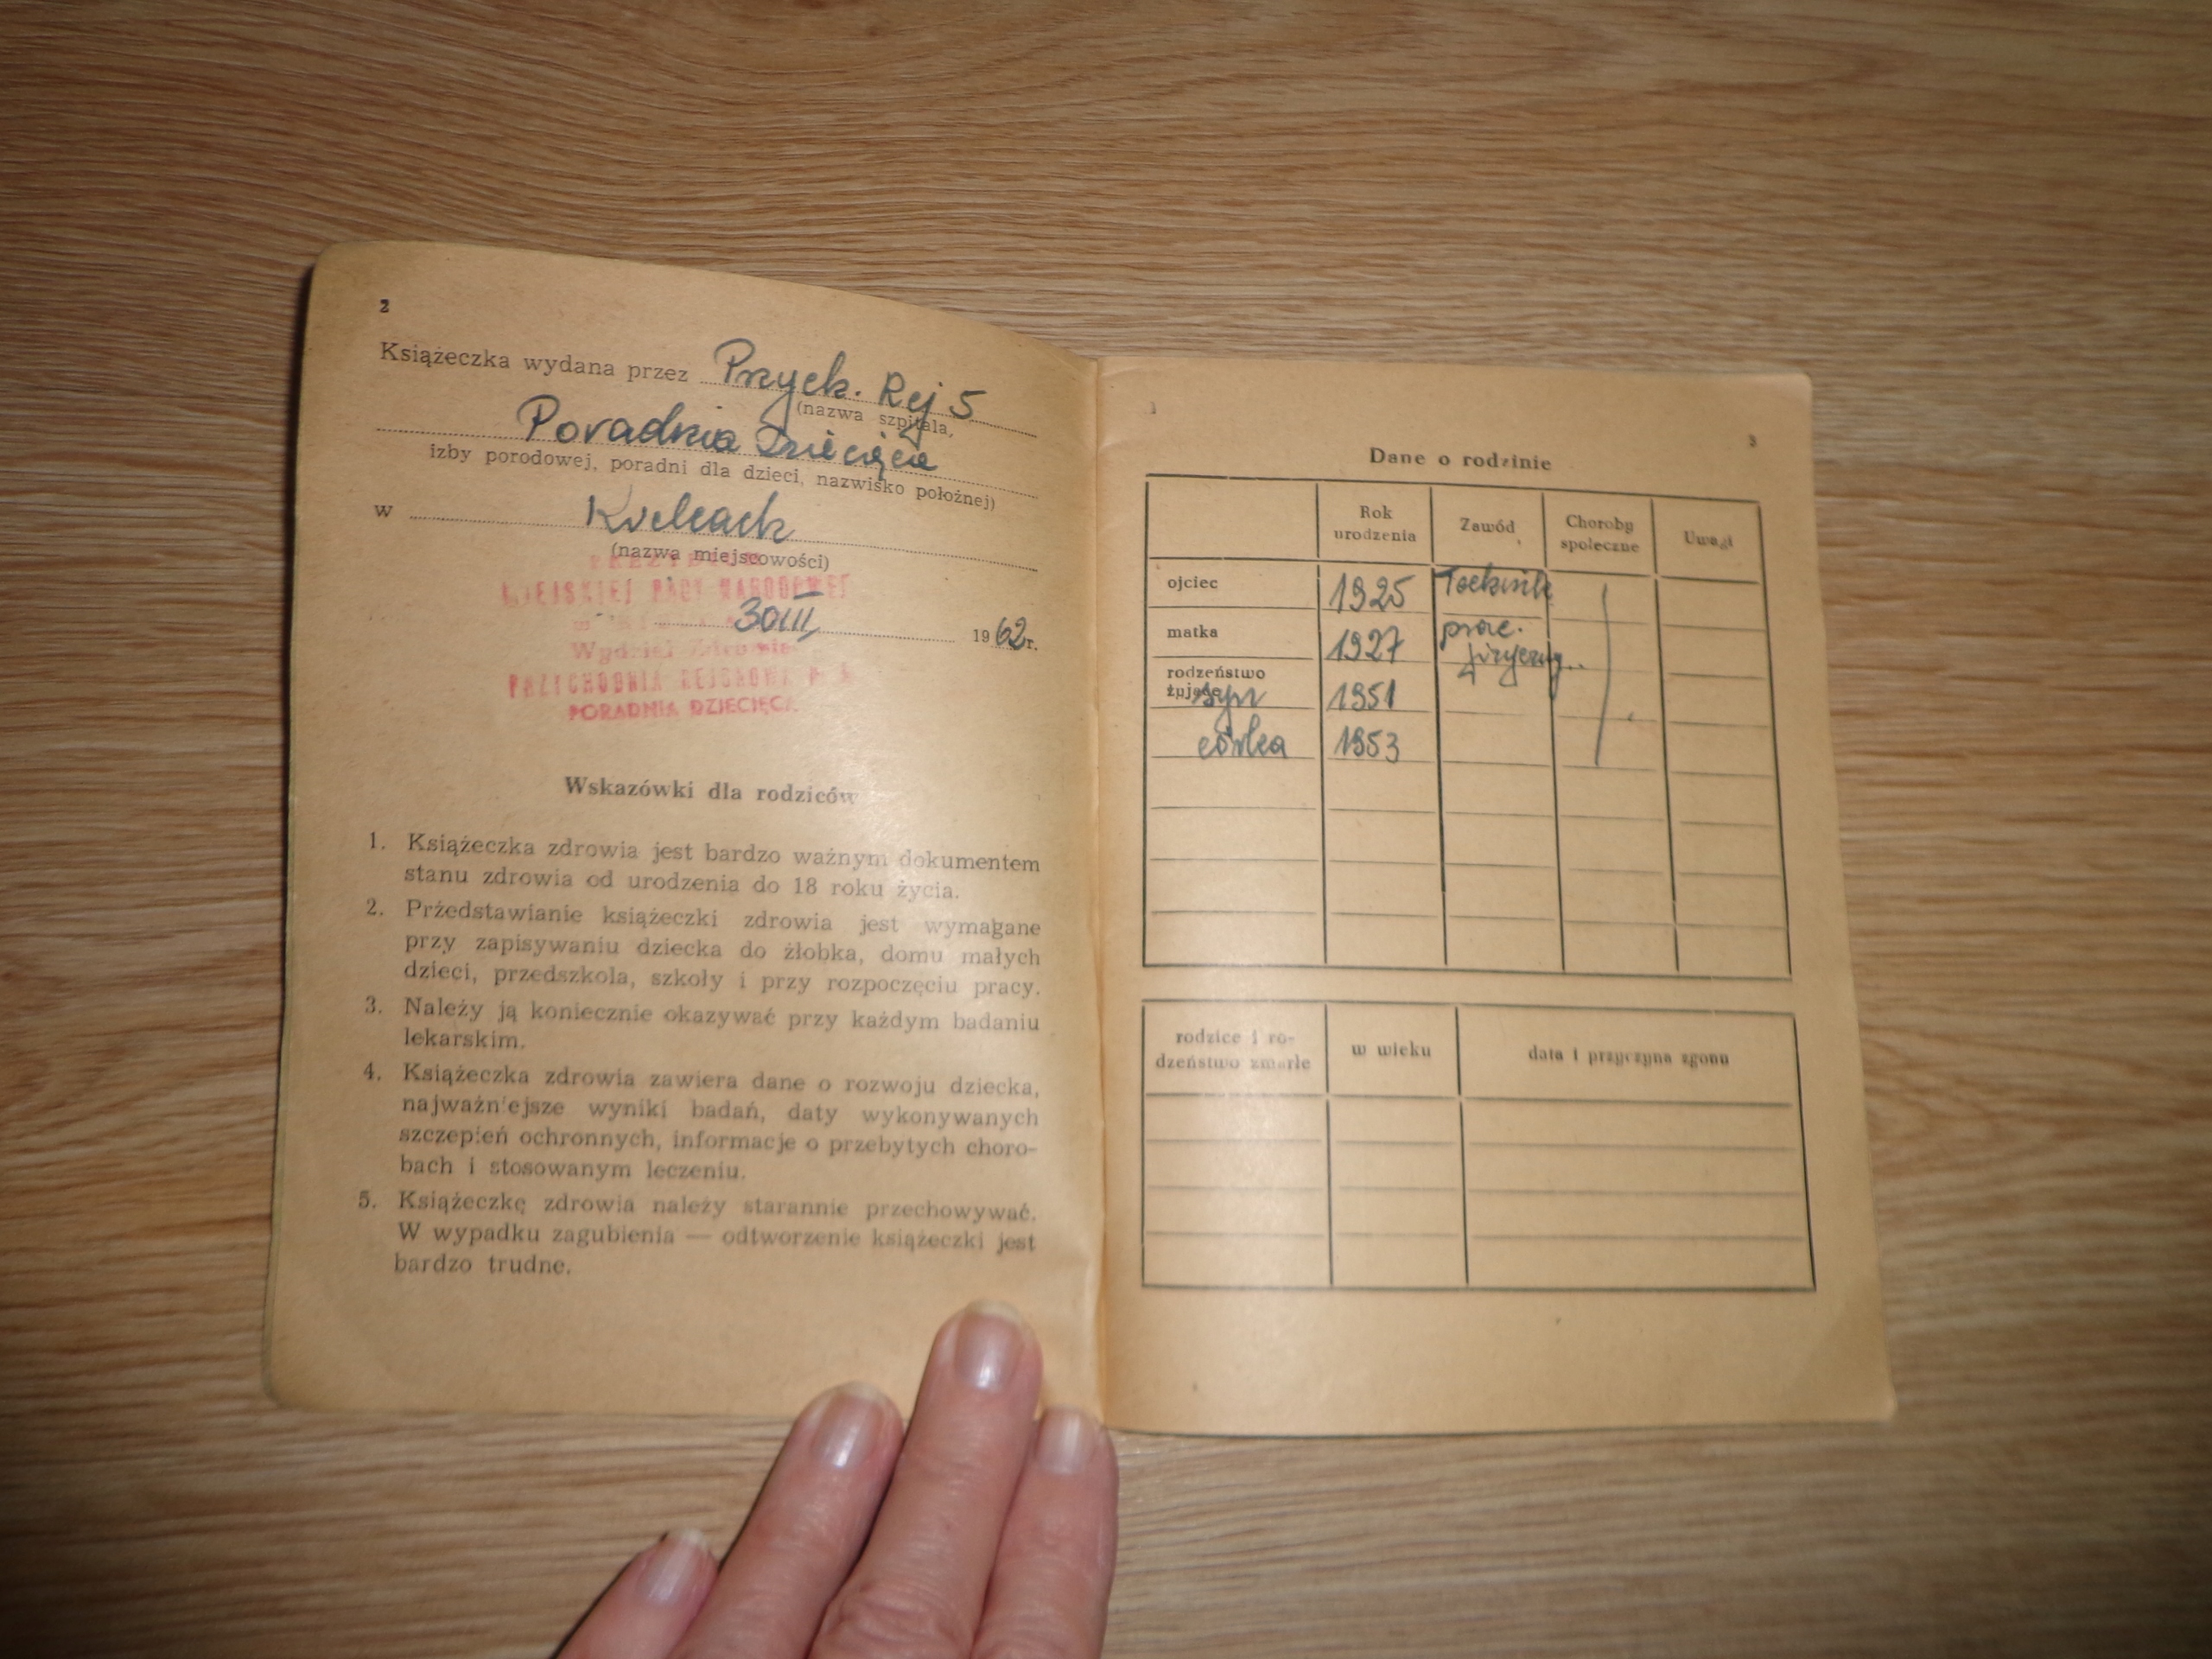 2
Książeczka wydana przez Przych. Rej 5
(nazwa szpitala,
Poradnia Dziecięca
izby porodowej, poradni dla dzieci, nazwisko położnej)
w Kielcach
(nazwa miejscowości)
MIEJSKIEJ RADY NARODOWEJ
30 III 1962 r.
PRZYCHODNIA REJONOWA
PORADNIA DZIECIĘCA
Wskazówki dla rodziców
1. Książeczka zdrowia jest bardzo ważnym dokumentem
stanu zdrowia od urodzenia do 18 roku życia.
2. Przedstawianie książeczki zdrowia jest wymagane
przy zapisywaniu dziecka do żłobka, domu małych
dzieci, przedszkola, szkoły i przy rozpoczęciu pracy.
3. Należy ją koniecznie okazywać przy każdym badaniu
lekarskim.
4. Książeczka zdrowia zawiera dane o rozwoju dziecka,
najważniejsze wyniki badań, daty wykonywanych
szczepień ochronnych, informacje o przebytych choro-
bach i stosowanym leczeniu.
5. Książeczkę zdrowia należy starannie przechowywać.
W wypadku zagubienia — odtworzenie książeczki jest
bardzo trudne.
3
Dane o rodzinie
Rok urodzenia Zawód Choroby społeczne Uwagi
ojciec 1925 Technik
matka 1927 prac.
rodzeństwo
żyjące syn 1951
córka 1953
rodzice i ro-
dzeństwo zmarłe w wieku data i przyczyna zgonu